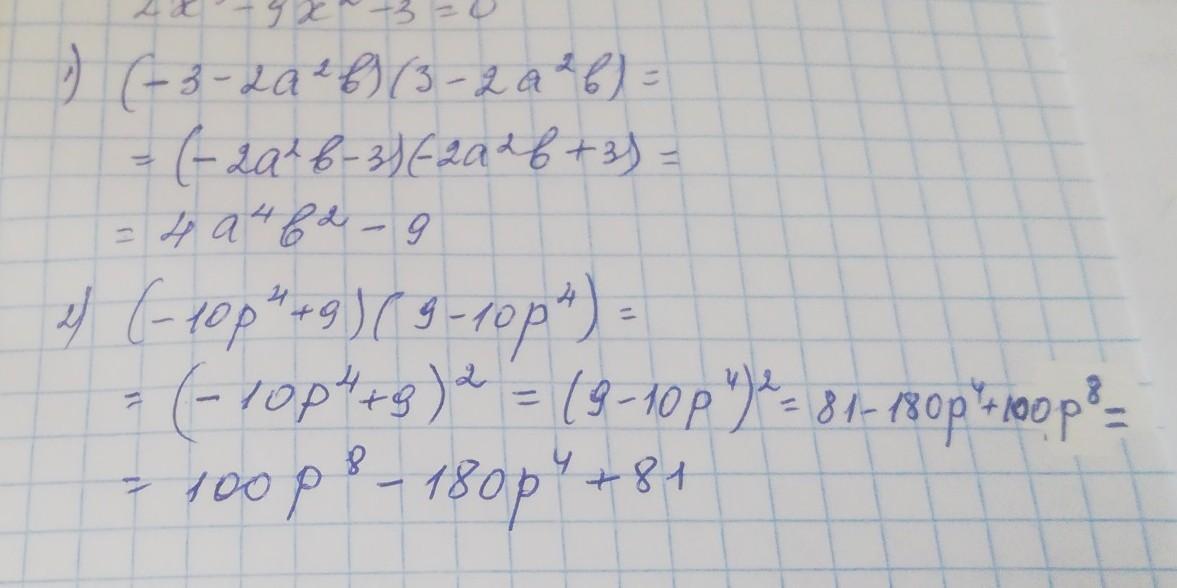 2x² - 9x² - 3 = 0
1) (-3-2a²b)(3-2a²b) =
= (-2a²b-3)(-2a²b+3) =
= 4a⁴b² - 9
2) (-10p⁴+9)(9-10p⁴) =
= (-10p⁴+9)² = (9-10p⁴)² = 81-180p⁴+100p⁸ =
= 100p⁸ - 180p⁴ + 81